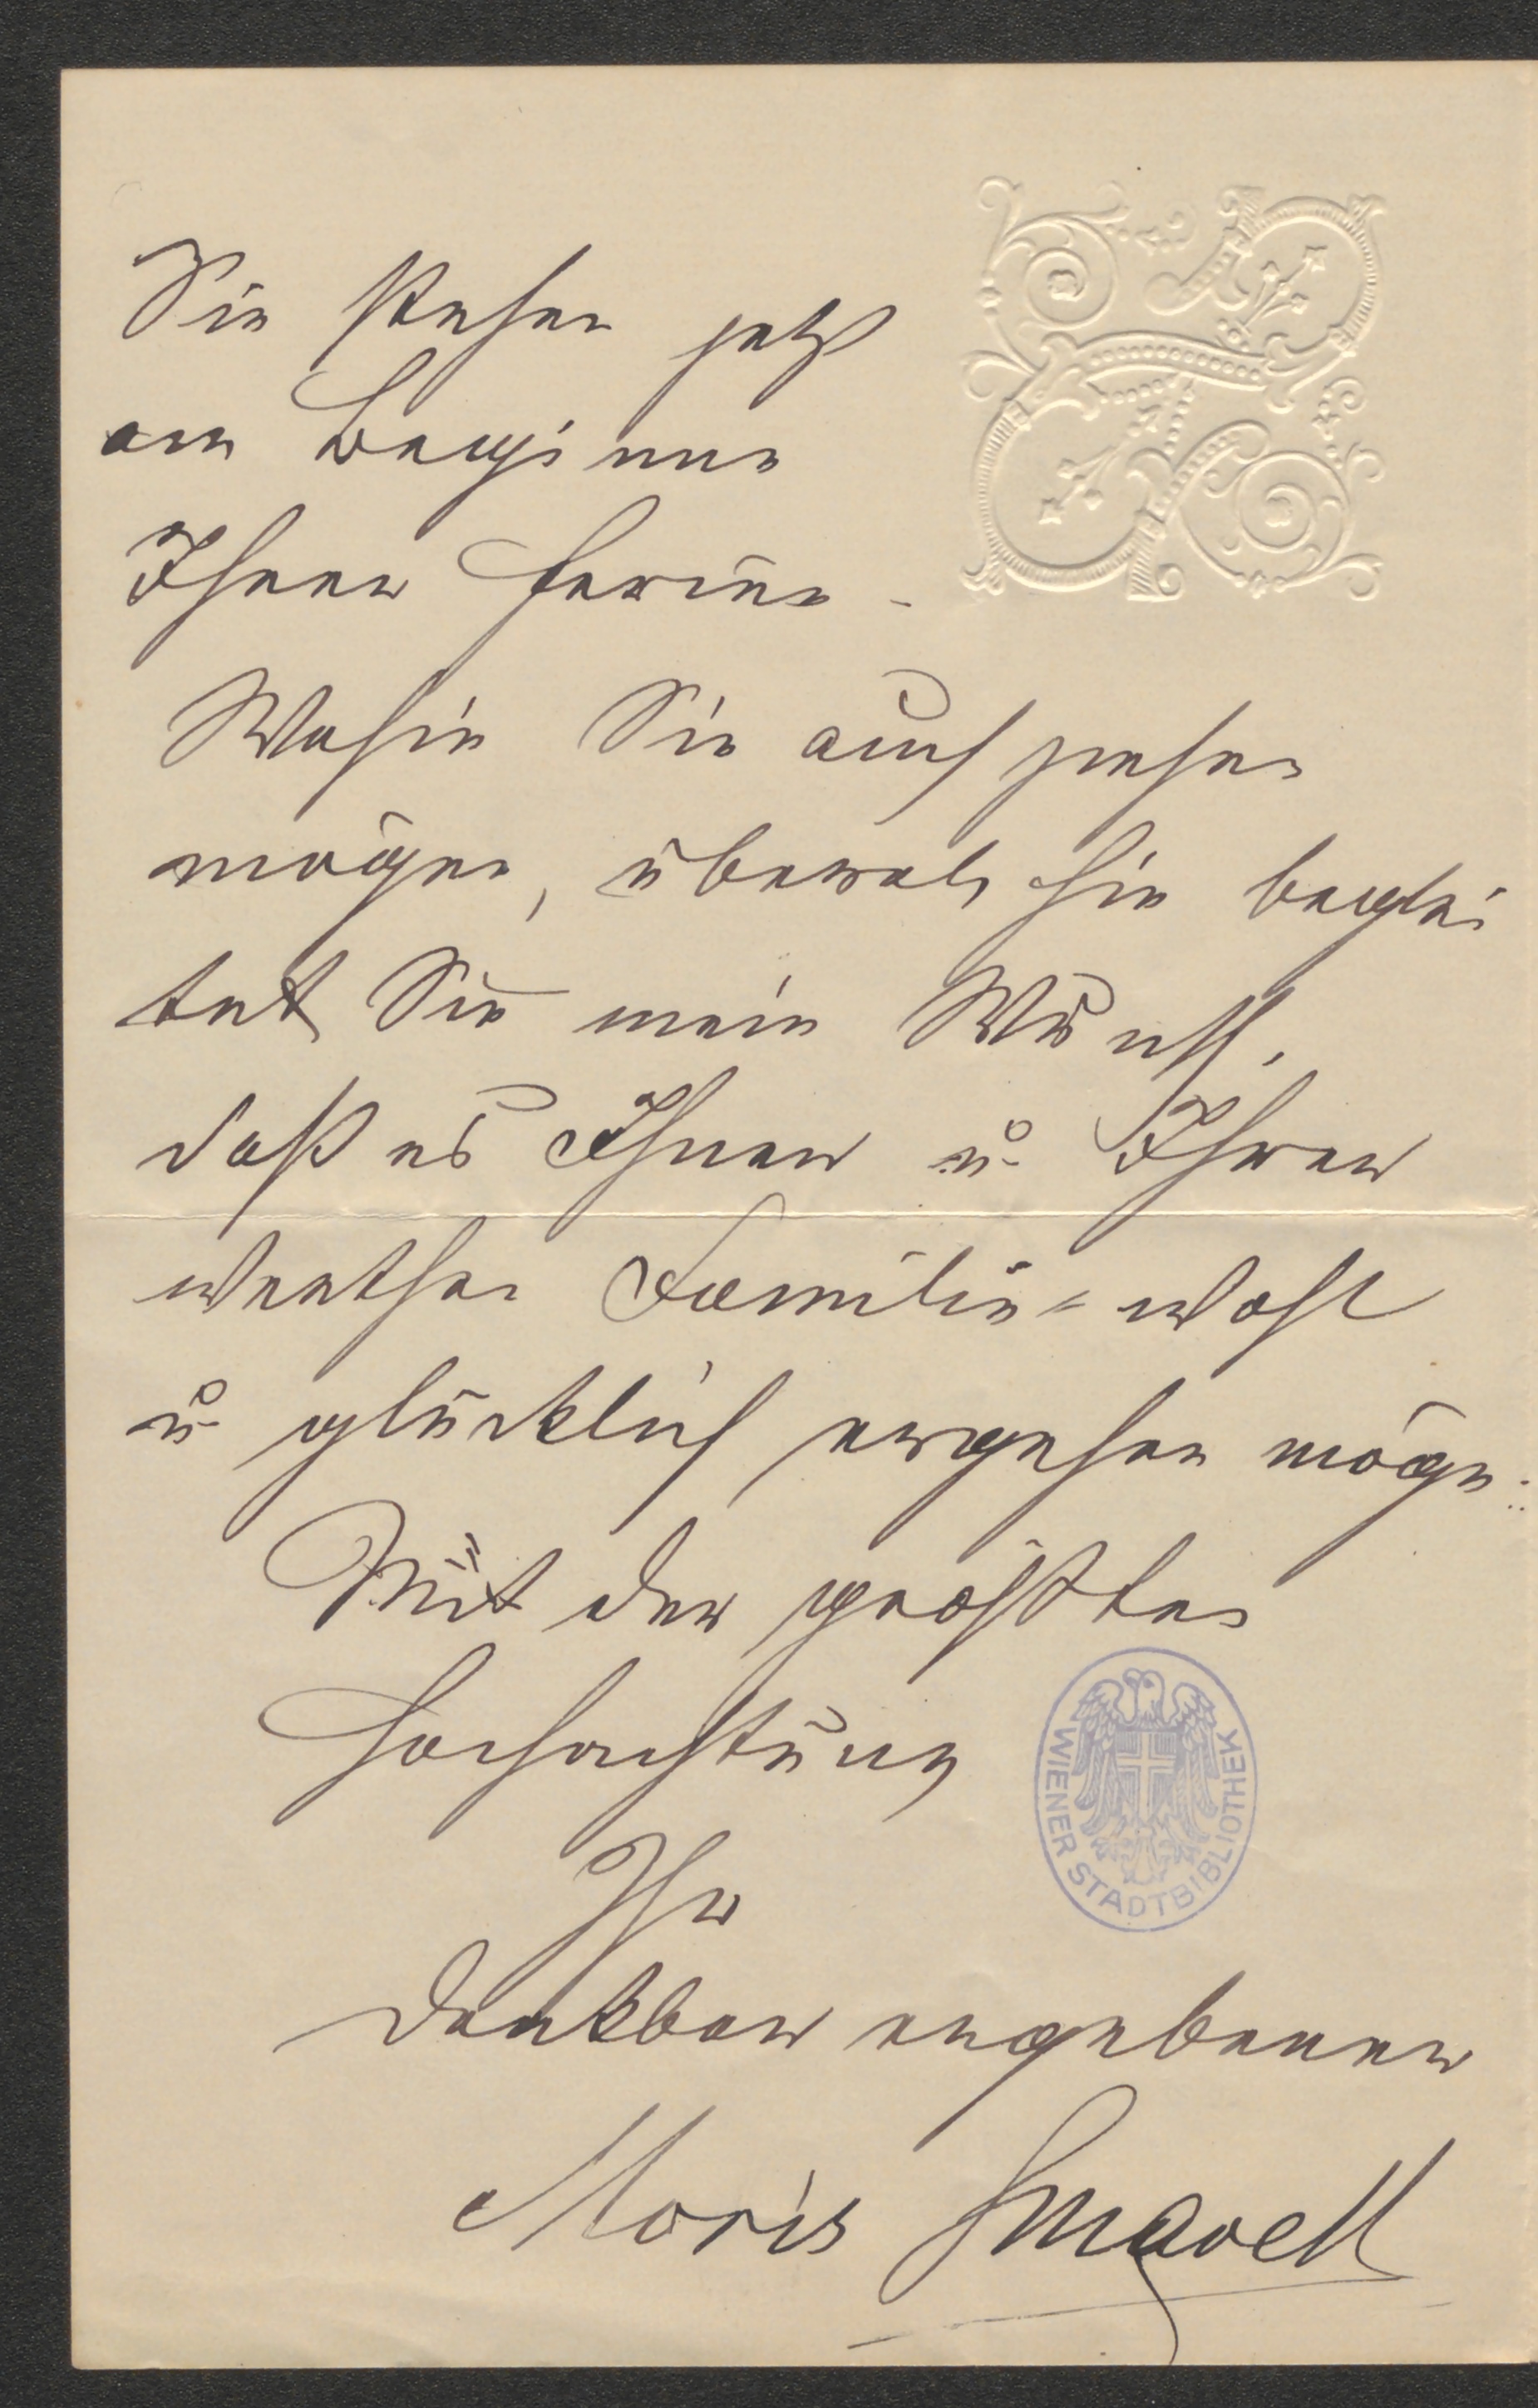 Sie stehen jetzt
am Beginne
Ihrer Ferien -
Wohin Sie auch gehen
mögen, überall hin beglei
tet Sie mein Wunsch,
daß es Ihnen u. Ihrer
werthen Familie wohl
u. glücklich ergehen möge.
Mit der größten
Hochachtung
Ihr
dankbar ergebener
Moris
WIENER STADTBIBLIOTHEK